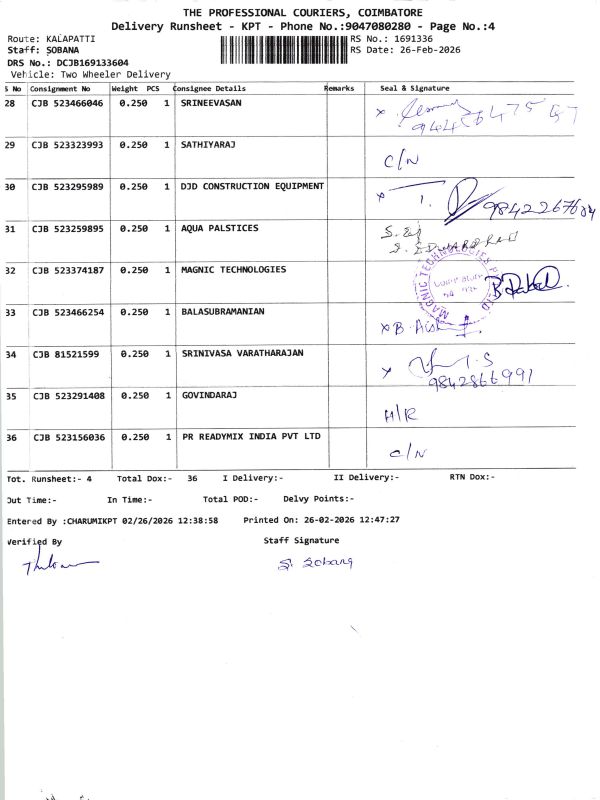 THE PROFESSIONAL COURIERS, COIMBATORE
Delivery Runsheet - KPT - Phone No.:9047080280 - Page No.:4
Route: KALAPATTI
RS No.: 1691336
Staff: SOBANA
RS Date: 26-Feb-2026
DRS No.: DCJB169133604
Vehicle: Two Wheeler Delivery
S No Consignment No Weight PCS Consignee Details Remarks Seal & Signature
28 CJB 523466046 0.250 1 SRINEEVASAN x
29 CJB 523323993 0.250 1 SATHIYARAJ C/N
30 CJB 523295989 0.250 1 DJD CONSTRUCTION EQUIPMENT x T.
31 CJB 523259895 0.250 1 AQUA PALSTICES
32 CJB 523374187 0.250 1 MAGNIC TECHNOLOGIES MAGNIC TECHNOLOGIES
33 CJB 523466254 0.250 1 BALASUBRAMANIAN x B.
34 CJB 81521599 0.250 1 SRINIVASA VARATHARAJAN x T.S
9842866991
35 CJB 523291408 0.250 1 GOVINDARAJ H/R
36 CJB 523156036 0.250 1 PR READYMIX INDIA PVT LTD C/N
Tot. Runsheet:- 4 Total Dox:- 36 I Delivery:- II Delivery:- RTN Dox:-
Out Time:- In Time:- Total POD:- Delvy Points:-
Entered By :CHARUMIKPT 02/26/2026 12:38:58 Printed On: 26-02-2026 12:47:27
Verified By Staff Signature
S. Sobana